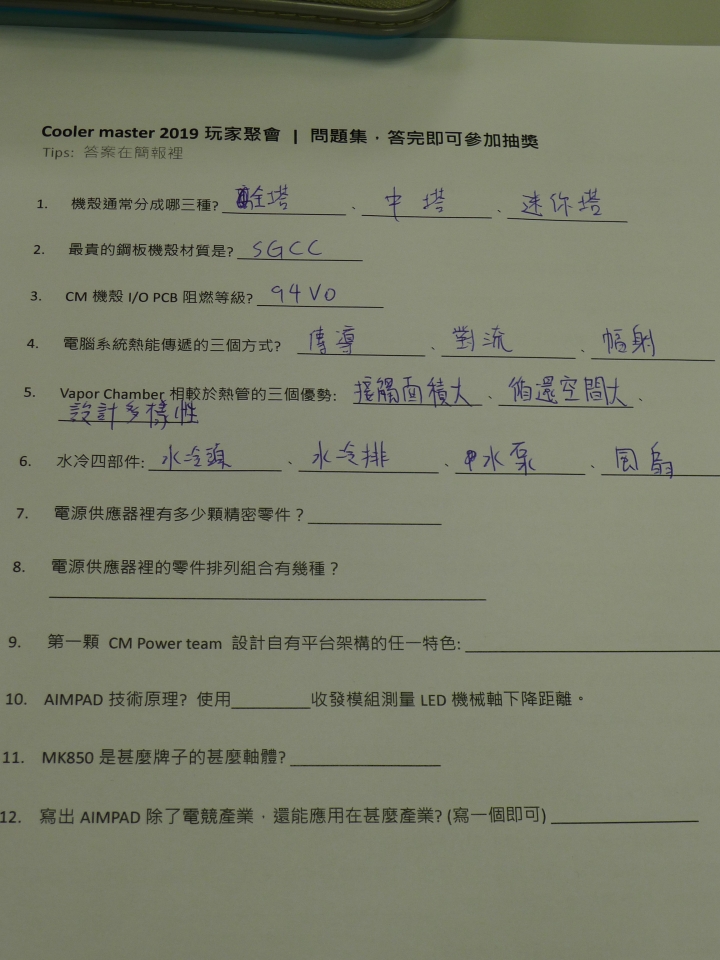 Cooler master 2019 玩家聚會 | 問題集，答完即可參加抽獎
Tips: 答案在簡報裡
1. 機殼通常分成哪三種? 全塔、中 塔、迷你塔
2. 最貴的鋼板機殼材質是? SGCC
3. CM 機殼 I/O PCB 阻燃等級? 94V0
4. 電腦系統熱能傳遞的三個方式? 傳導、對流、幅射
5. Vapor Chamber 相較於熱管的三個優勢: 接觸面積大、循還空間大、
設計多樣性
6. 水冷四部件: 水冷頭、水冷排、水泵、風扇
7. 電源供應器裡有多少顆精密零件？
8. 電源供應器裡的零件排列組合有幾種？
9. 第一顆 CM Power team 設計自有平台架構的任一特色:
10. AIMPAD 技術原理? 使用________收發模組測量 LED 機械軸下降距離。
11. MK850 是甚麼牌子的甚麼軸體?
12. 寫出 AIMPAD 除了電競產業，還能應用在甚麼產業? (寫一個即可)